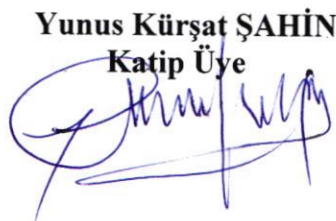 Yunus Kürşat ŞAHİN
Katip Üye